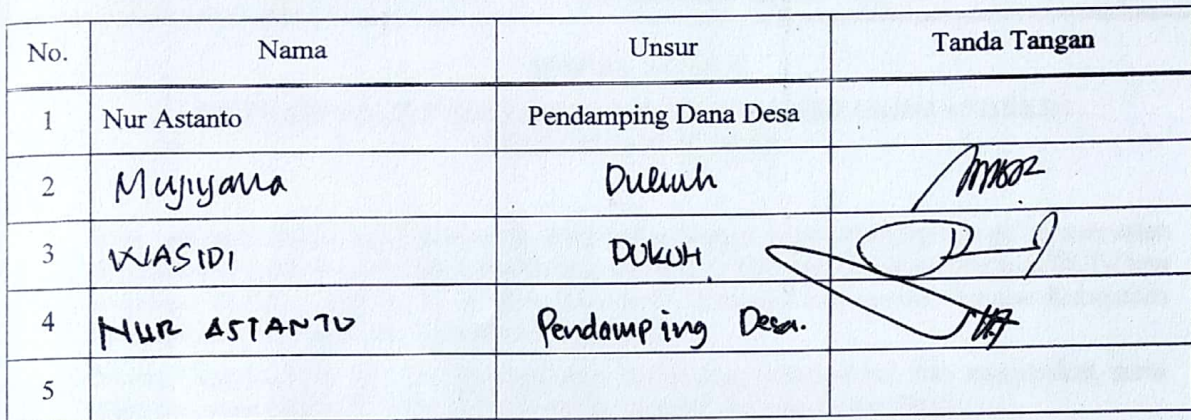 No. Nama Unsur Tanda Tangan
1 Nur Astanto Pendamping Dana Desa
2 Mujiyana Dukuh
3 WASIDI DUKUH
4 NUR ASTANTO Pendamping Desa.
5